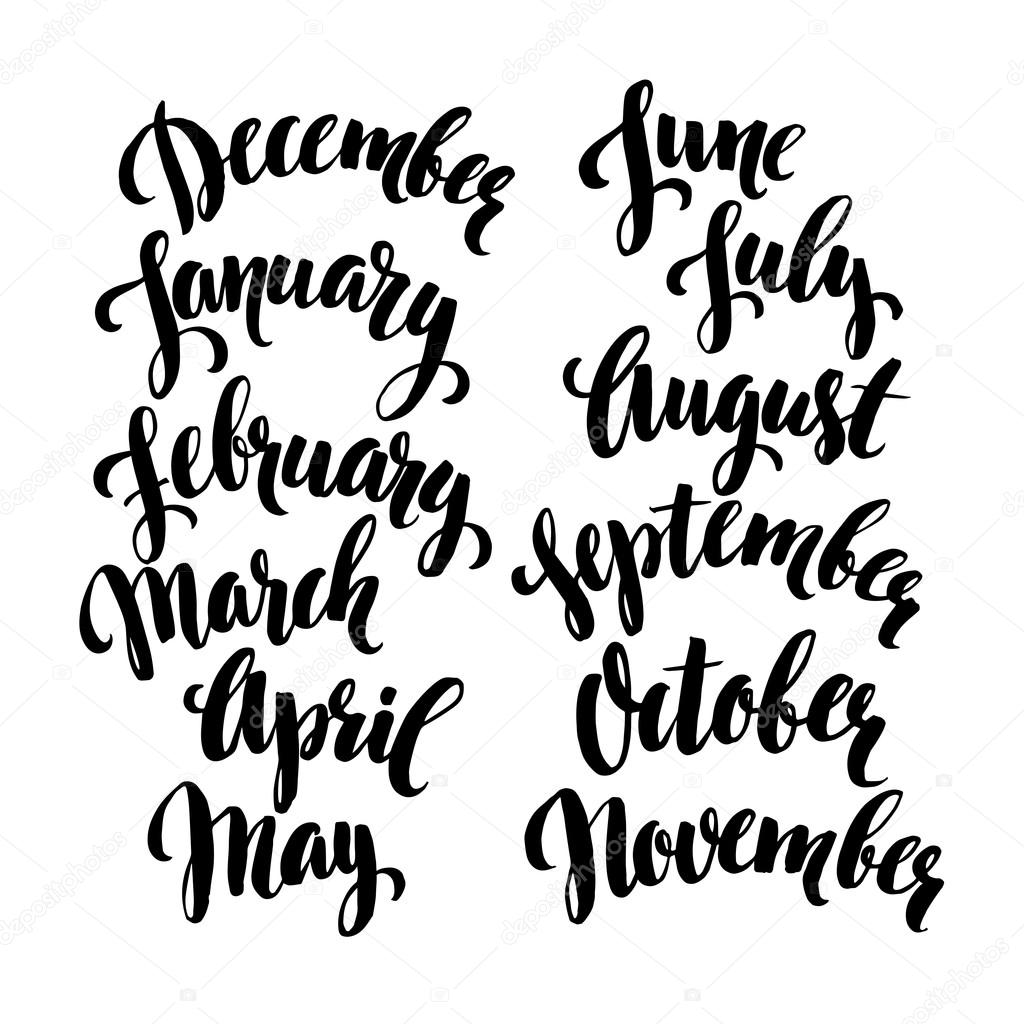 December
January
February
March
April
May
June
July
August
September
October
November
depositphotos